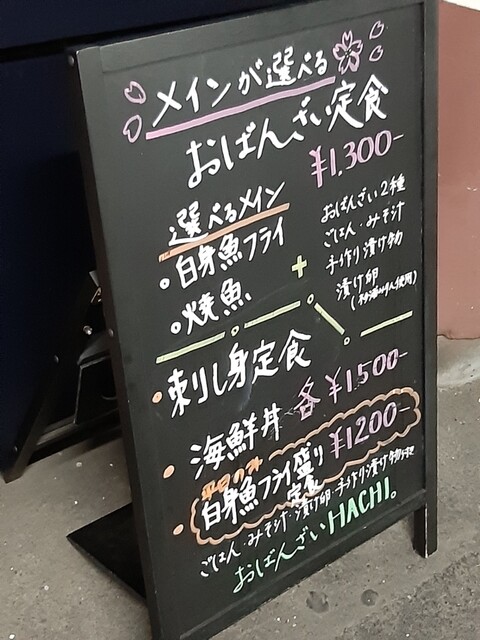 メインが選べる
おばんざい定食
¥1.300-
選べるメイン
・白身魚フライ
・焼魚
+
おばんざい2種
ごはん・みそ汁
手作り漬け物
漬け卵
・刺し身定食
・海鮮丼 各¥1500-
平日のみ
・白身魚フライ盛り定食 ¥1200-
ごはん・みそ汁・漬け卵・手作り漬け物
おばんざいHACHI。